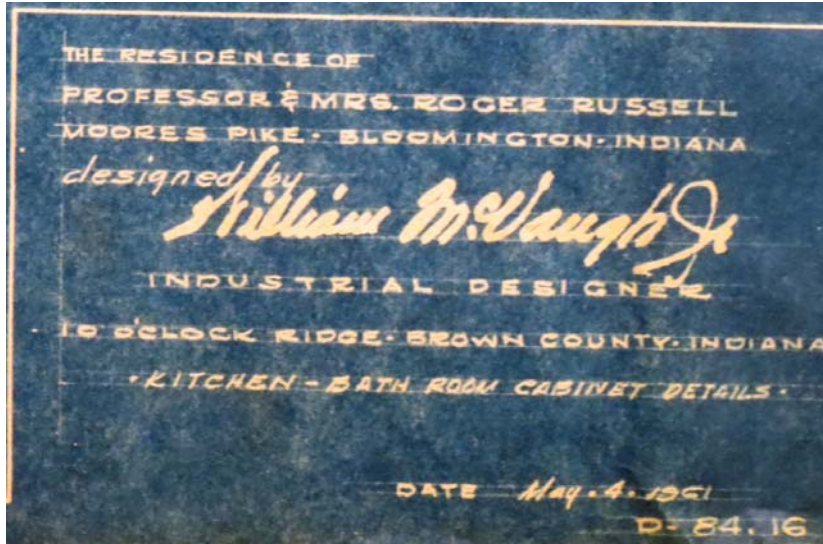 THE RESIDENCE OF
PROFESSOR & MRS. ROGER RUSSELL
MOORES PIKE · BLOOMINGTON · INDIANA
designed by
William McVaugh Jr
INDUSTRIAL DESIGNER
10 O'CLOCK RIDGE · BROWN COUNTY · INDIANA
· KITCHEN - BATH ROOM CABINET DETAILS ·
DATE May · 4 · 1961
D- 84.16